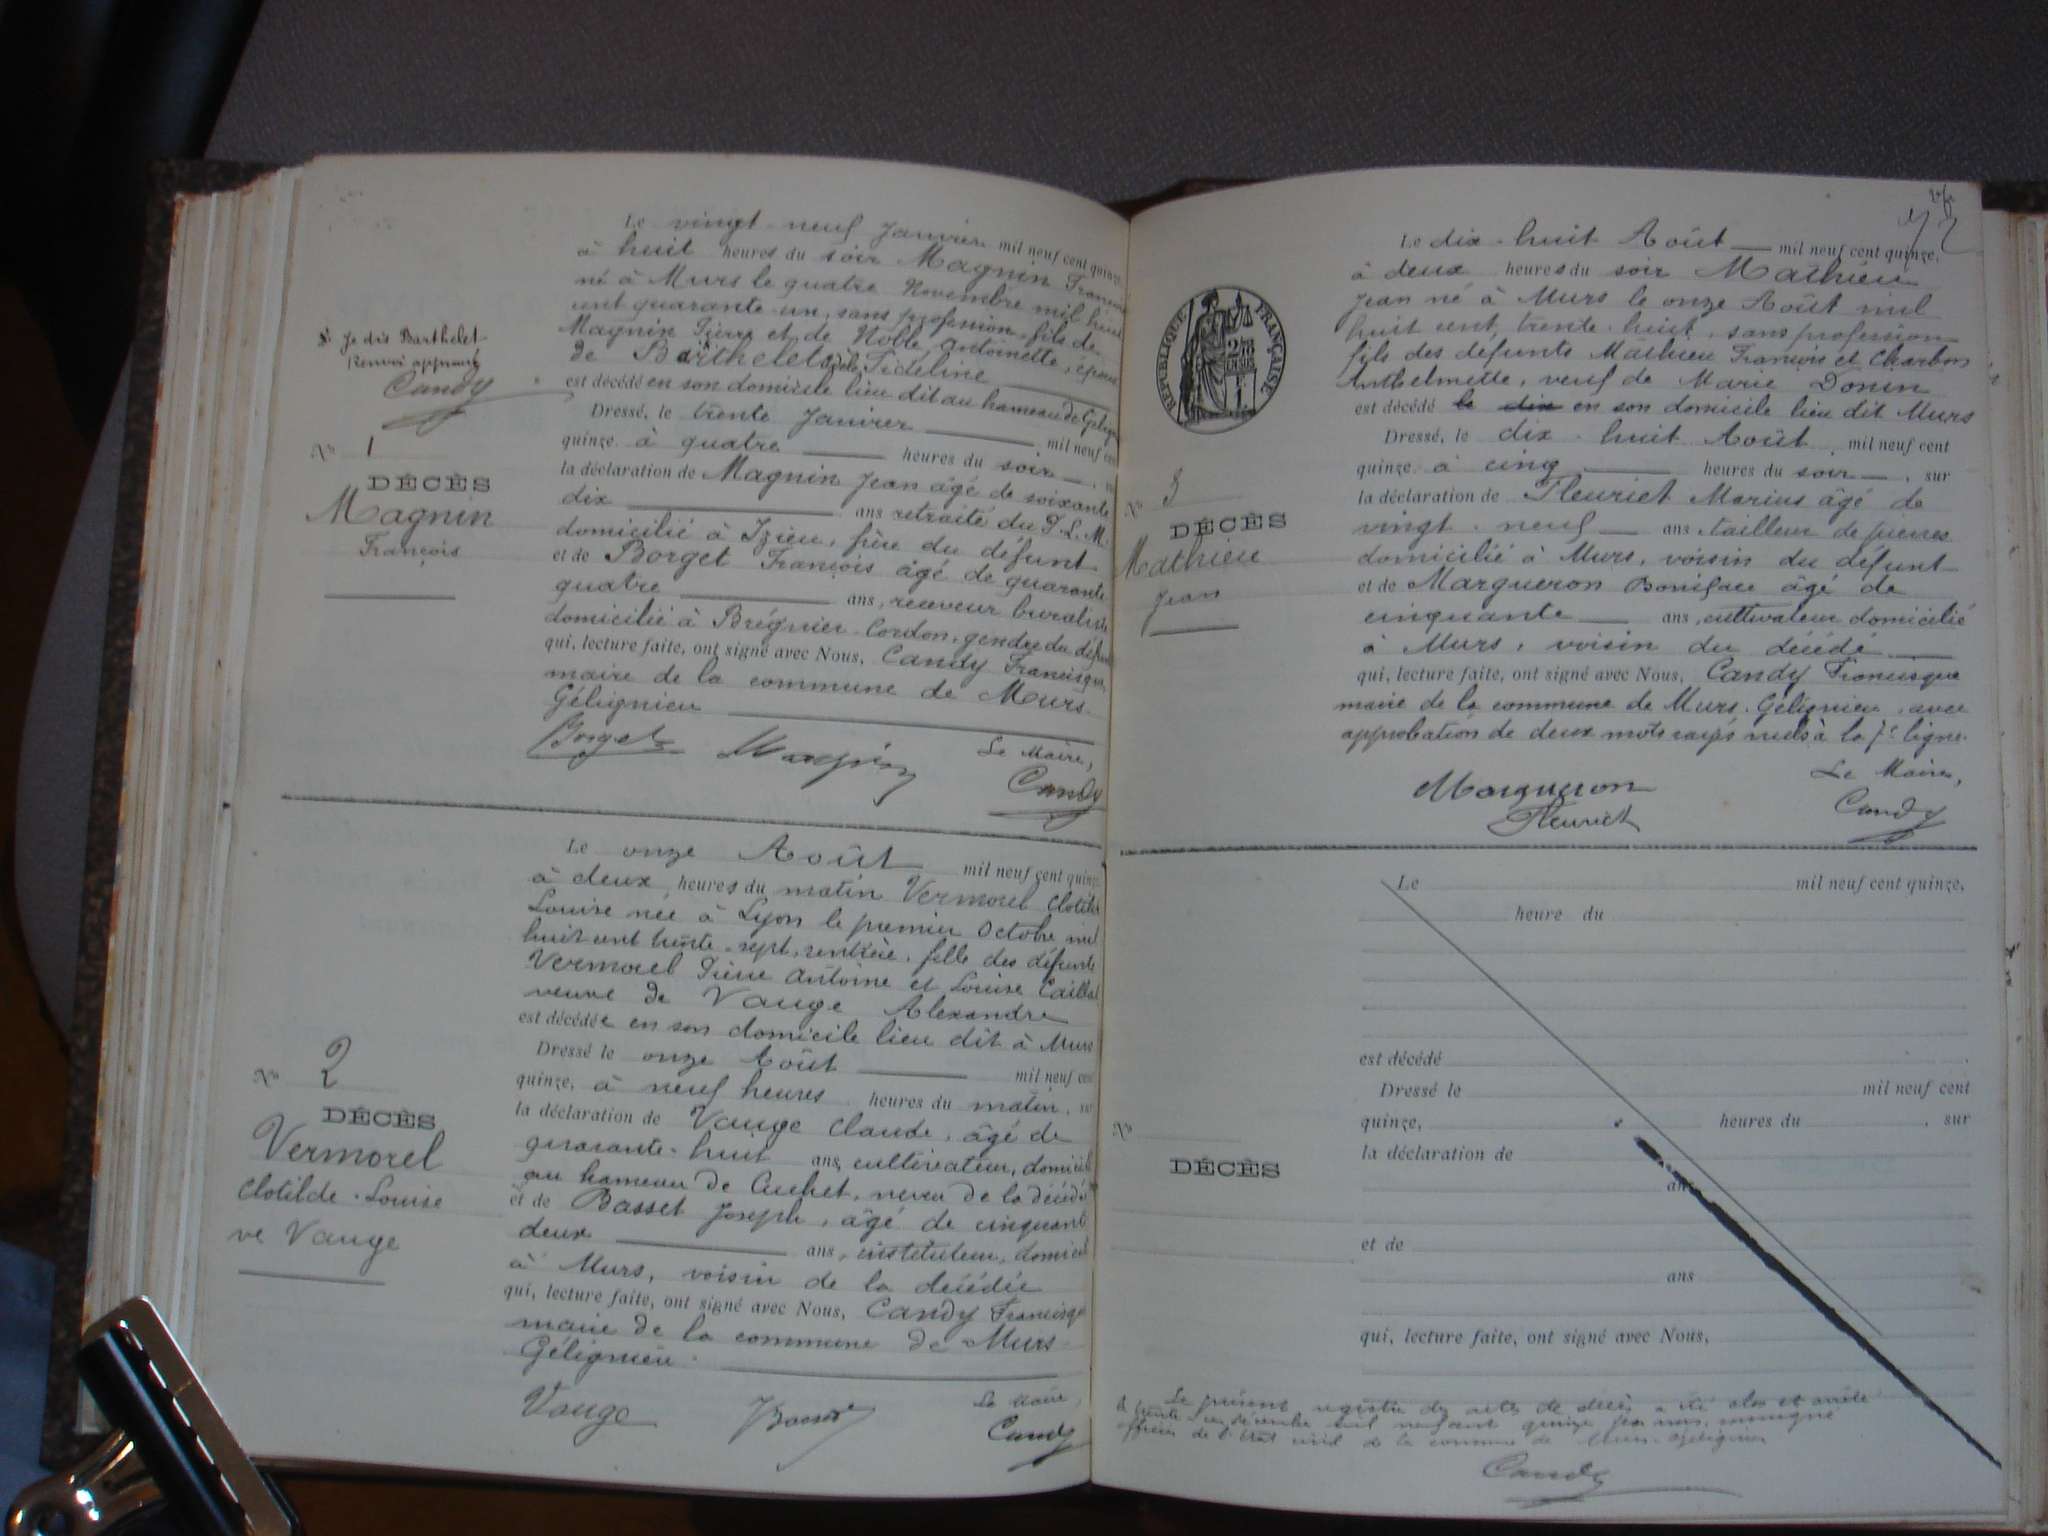 Le vingt-neuf Janvier mil neuf cent quinze
à huit heures du soir Magnin François
né à Murs le quatre Novembre mil huit
cent quarante-un, sans profession, fils de
Magnin Pierre et de Noble Antoinette, époux
de Barthelet Fideline
est décédé en son domicile lieu dit au hameau de
Dressé, le trente Janvier mil neuf cent
quinze à quatre heures du soir
la déclaration de Magnin Jean âgé de soixante
dix ans retraité du P.L.M.
domicilié à Izieu, frère du défunt
et de Borget François âgé de quarante
quatre ans, receveur buraliste
domicilié à Brégnier-Cordon, gendre du défunt
qui, lecture faite, ont signé avec Nous, Candy Francisque,
maire de la commune de Murs-
Gélignieu
Borget Magnin Le Maire,
Candy
Je dis Barthelet
Renvoi approuvé
Candy
N° 1
DÉCÈS
Magnin
François
Le onze Août mil neuf cent quinze
à deux heures du matin Vermorel Clotilde
Louise née à Lyon le premier Octobre mil
huit cent trente-sept, rentière, fille des défunts
Vermorel Pierre Antoine et Louise
veuve de Vauge Alexandre
est décédée en son domicile lieu dit à Murs
Dressé le onze Août mil neuf cent
quinze, à neuf heures heures du matin, sur
la déclaration de Vauge Claude, âgé de
quarante-huit ans, cultivateur, domicilié
au hameau de Cuchet, neveu de la décédée
et de Basset Joseph, âgé de cinquante
deux ans, instituteur, domicilié
à Murs, voisin de la décédée
qui, lecture faite, ont signé avec Nous, Candy Francisque
maire de la commune de Murs-
Gélignieu.
Vauge JBasset Le Maire,
Candy
N° 2
DÉCÈS
Vermorel
Clotilde-Louise
ve Vauge
Le dix-huit Août mil neuf cent quinze,
à deux heures du soir Mathieu
Jean né à Murs le onze Août mil
huit cent trente-huit, sans profession
fils des défunts Mathieu François et Charbon
Anthelmette, veuf de Marie Donin
est décédé le dix en son domicile lieu dit Murs
Dressé, le dix-huit Août mil neuf cent
quinze à cinq heures du soir, sur
la déclaration de Fleuriet Marius âgé de
vingt-neuf ans, tailleur de pierres
domicilié à Murs, voisin du défunt
et de Margueron Boniface âgé de
cinquante ans, cultivateur domicilié
à Murs, voisin du décédé
qui, lecture faite, ont signé avec Nous, Candy Francisque
maire de la commune de Murs-Gélignieu, avec
approbation de deux mots rayés nuls à la 7e ligne.
Margueron Le Maire,
Fleuriet Candy
RÉPUBLIQUE FRANÇAISE
N° 3
DÉCÈS
Mathieu
Jean
Le mil neuf cent quinze,
heure du
est décédé
Dressé le mil neuf cent
quinze, heures du , sur
la déclaration de
ans
et de
ans
qui, lecture faite, ont signé avec Nous,
N°
DÉCÈS
Le présent registre des actes de décès a été clos et arrêté
le trente-un décembre mil neuf cent quinze par nous, soussigné
officier de l'état civil de la commune de Murs-Gélignieu
Candy